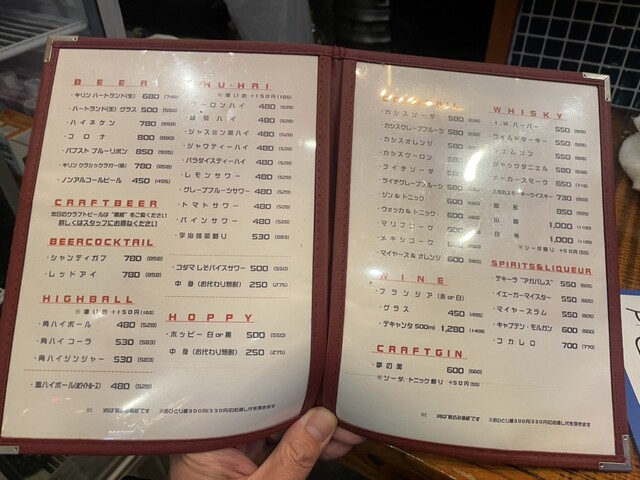 BEER
・キリン ハートランド(生) 680 (748)
・ハートランド(生) グラス 500 (550)
・ハイネケン 780 (858)
・コロナ 800 (880)
・パブスト ブルーリボン 850 (935)
・キリン クラシックラガー(瓶) 780 (858)
・ノンアルコールビール 450 (495)
CRAFTBEER
本日のクラフトビールは"黒板"をご覧ください
詳しくはスタッフにお尋ねください
BEERCOCKTAIL
・シャンディガフ 780 (858)
・レッドアイ 780 (858)
HIGHBALL
※濃いめ +150円(165)
・角ハイボール 480 (528)
・角ハイコーラ 530 (583)
・角ハイジンジャー 530 (583)
480 (528)
NU・HAI
※濃いめ +150円(165)
ウーロンハイ 480 (528)
緑茶ハイ 480 (528)
・ジャスミン茶ハイ 480 (528)
・ジャワティーハイ 480 (528)
・パラダイスティーハイ 480 (528)
・レモンサワー 480 (528)
・グレープフルーツサワー 480 (528)
・トマトサワー 480 (528)
・パインサワー 480 (528)
・宇治抹茶割り 530 (583)
・コダマしそバイスサワー 500 (550)
中身(お代わり焼酎) 250 (275)
HOPPY
・ホッピー 白or黒 500 (550)
中身(お代わり焼酎) 250 (275)
※( )内は"税込み価格"です ※おひとり様300円(330円)のお通し代を頂きます
・カシスソーダ 580
・カシスグレープフルーツ 580
・カシスオレンジ 580
・カシスウーロン 580
・ライチソーダ 580
・ライチグレープフルーツ 580
・ジン&トニック 600
・ウォッカ&トニック 600
・マリブコーク 600
・メキシコーク 600
・マイヤーズ&オレンジ 600 (660)
WINE
・フランジア(赤or白)
・グラス 450 (495)
・デキャンタ 500ml 1,280 (1408)
CRAFTGIN
・夢の美 600 (660)
※ソーダ、トニック割り +50円(55)
WHISKY
・I.W.ハーパー 550 (605)
・ワイルドターキー 550
・ジェムソン 550
・ジャックダニエル 580
・メーカーズマーク 650 (715)
730 (803)
・知多 850 (935)
・山崎 1,000 (1100)
・白州 1,000 (1100)
※ソーダ割り +50円(55)
SPIRITS&LIQUEUR
・テキーラ "アガバレス" 500 (550)
・イエーガーマイスター 500 (550)
・マイヤーズラム 550 (605)
・キャプテン・モルガン 600 (660)
・コカレロ 700 (770)
※( )内は"税込み価格"です ※おひとり様300円(330円)のお通し代を頂きます